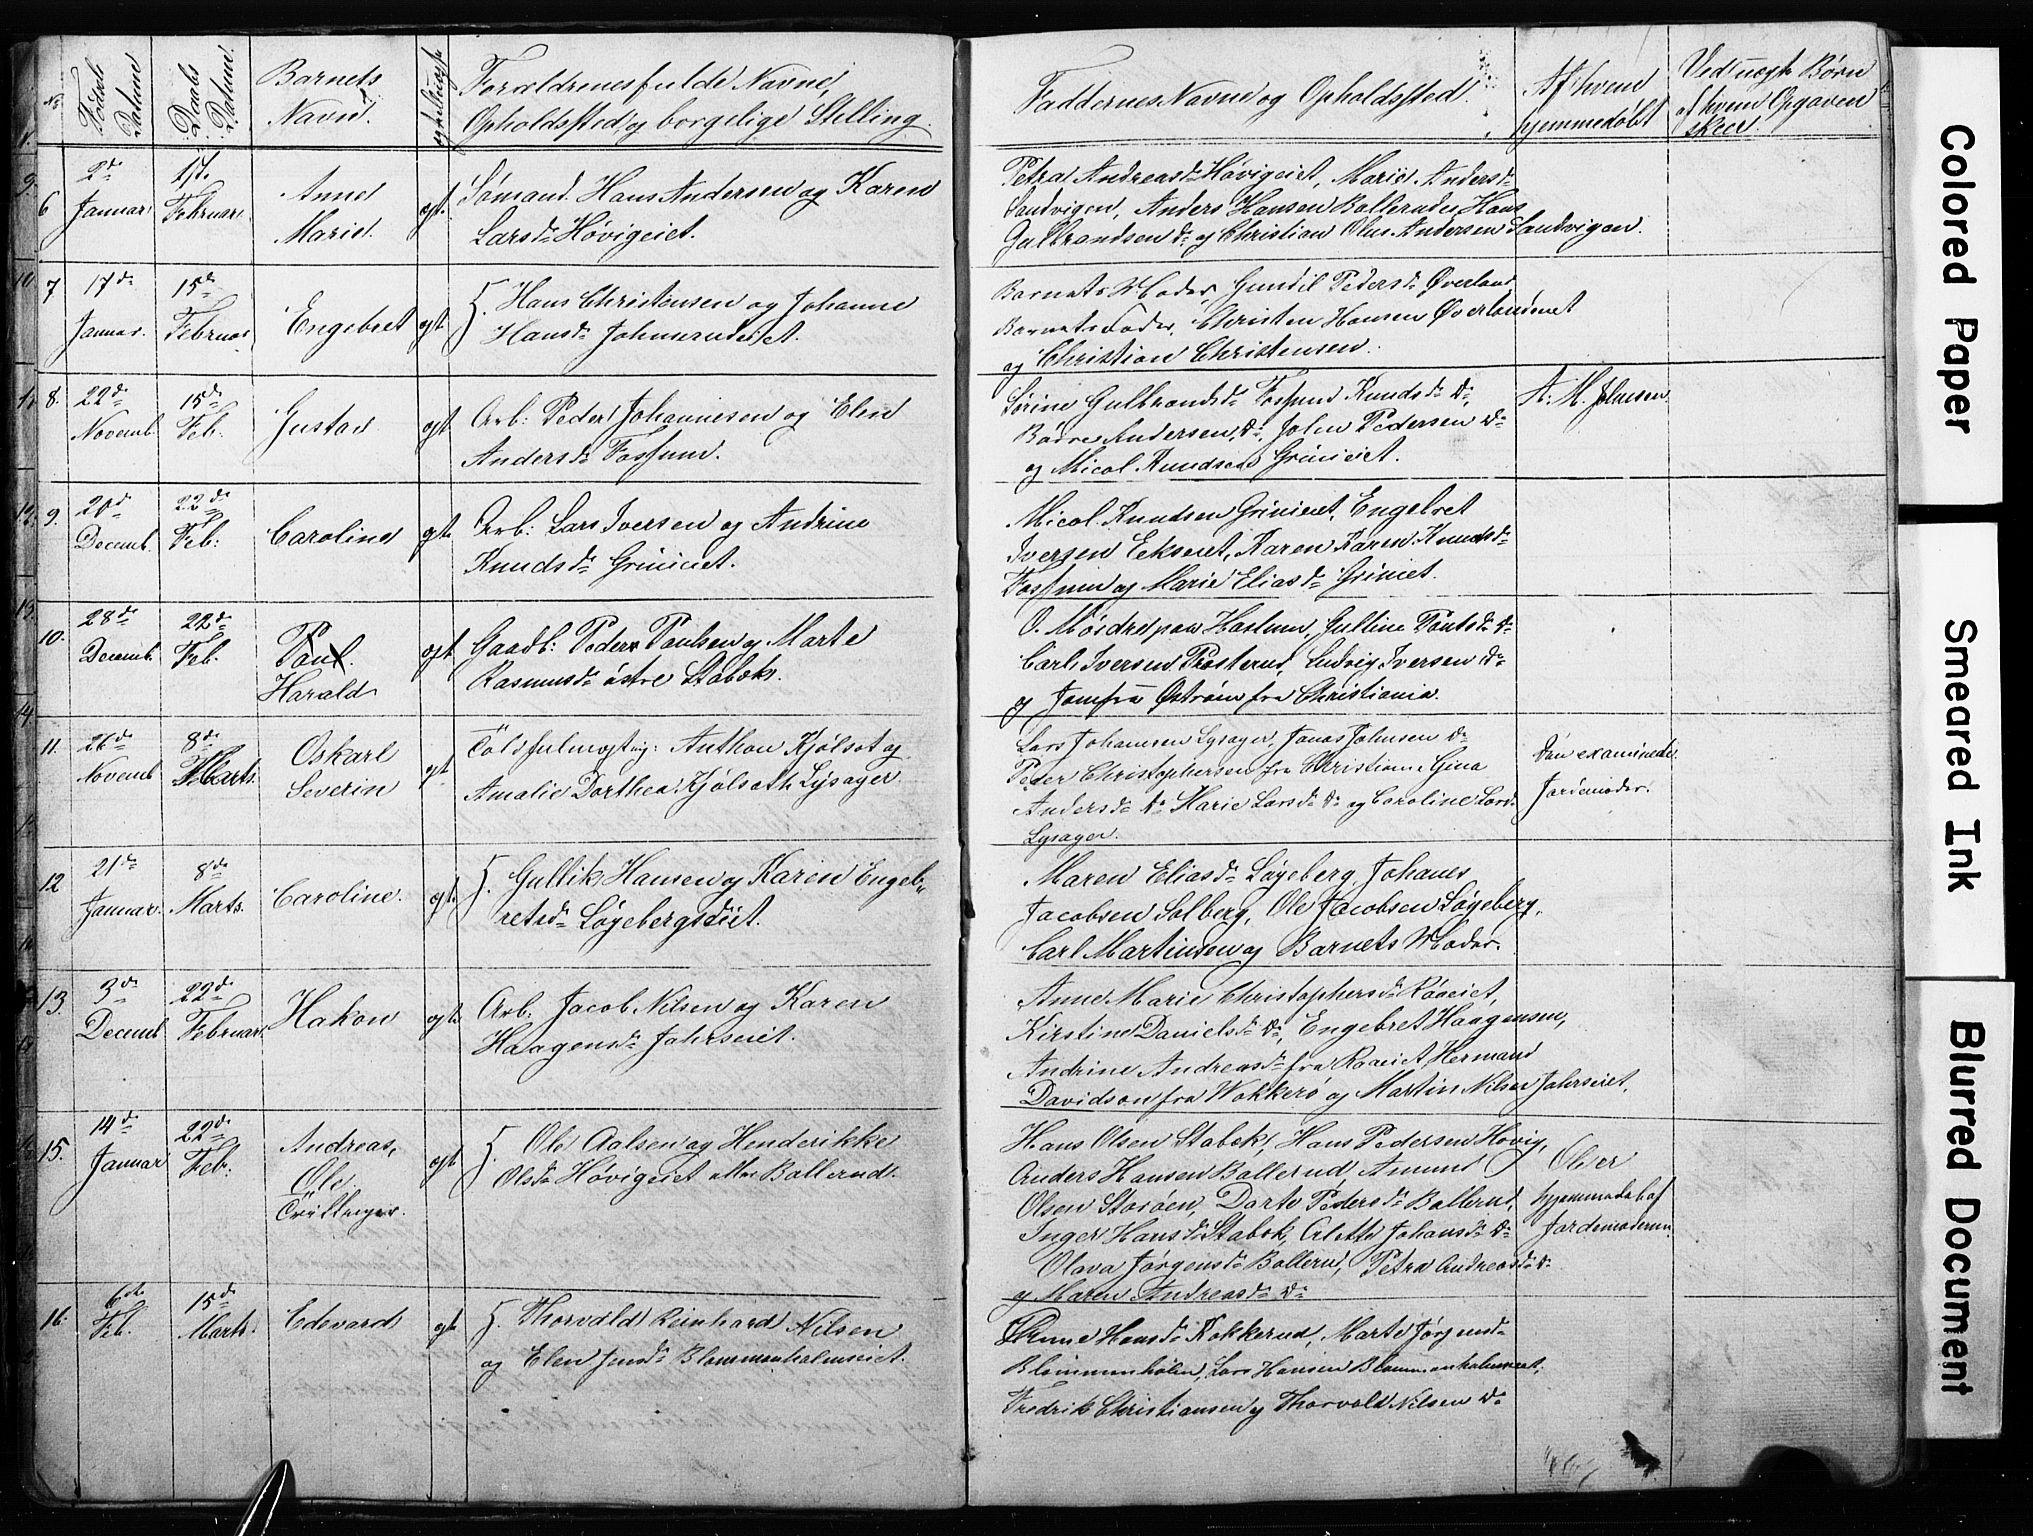 No
Fødsels Datum
Daabs Datum
Barnets
Navn.
Forældrenes fulde Navne,
Opholdssted og borgelige Stilling.
Faddernes Navne og Opholdssted.
Af hvem
hjemmedøbt
Ved uægte Børn
af hvem Opgaven
skeer.
6
2de
Januar
17.
Februar
Anne
Marie.
egt.
Sømand. Hans Andersen og Karen
Larsdr Høvigeiet.
Petra Andreasdr Høvigeiet, Marie Andersdr
Sandvigen, Anders Hansen Ballerud, Hans
Gulbrandsen do og Christian Olus Andersen Sandvigen.
7
17de
Januar.
15de
Februar
Engebret
egt.
H. Hans Christensen og Johanne
Hansdr Johnsrudeiet.
Barnets Moder, Gundil Pedersdr Øverland
Barnets Fader, Christen Hansen Øverlandeiet
og Christian Christensen.
8.
22de
Novemb.
15de
Feb.
Gustav
egt.
Arb: Peder Johannesen og Elen
Andersdr Fossum.
Sørine Gulbrandsdr Fossum Knudsdr do,
Andersen, do, John Pedersen do
og Micol Knudsen Grinieiet.
A. M. Johnsen.
9.
20de
Decemb.
22de
Feb:
Caroline
egt.
Arb: Lars Iversen og Andrine
Knudsdr Grinieiet.
Micol Knudsen Grinieiet, Engebret
Iversen Eekseiet, Karen Karen Knudsdr
Fossum og Marie Eliasdr Grinieiet.
10.
28de
Decemb.
22de
Feb.
Paul.
Harald
egt.
Gaadb: Peder Paulsen og Marte
Rasmusdr østre Stabæk.
O. Haslum, Gulline do
Carl Iversen Presterud, Ludvig Iversen do
og Jomfru Østrøm fra Christiania.
11.
26de
Novemb
8de
Marts.
Oskarl
Severin
egt.
Toldfulmægtig: Anthon Kjølset og
Amalie Dorthea Kjølseth Lysager.
Lars Johannsen Lysager, Jonas Johnsen do
Peder Christophersen fra Christiania, Gina
Andersdr do Marie Larsdr do og Caroline Larsdr
Lysager.
Den examinede
Jordemoder.
12
21de
Januar.
8de
Marts.
Caroline.
egt.
H. Gullik Hansen og Karen Engeb-
retsdr Løgebergseiet.
Maren Eliasdr Løgeberg, Johanes
Jacobsen Solberg, Ole Jacobsen Løgeberg,
Carl Martinsen og Barnets Moder.
13.
3de
Decemb
22de
Februar.
Hakon
egt.
Arb. Jacob Nilsen og Karen
Haagensdr Jahrseiet.
Anne Marie Christophersdr Raaeiet,
Kirstine Danielsdr do, Engebret Haagensen,
Andrine Andreasdr fra Raaeiet, Hermand
Davidson fra Wækkerø og Martin Nilsen Jahrseiet.
15.
14de
Januar
22de
Feb:
Andreas,
Ole
Tvillinger.
egt
H. Ole Aalsen og Henderikke
Olsdr Høvigeiet eller Ballerud.
Hans Olsen Stabek, Hans Pedersen Høvig,
Anders Hansen Ballerud, Amund
Olsen Storøen, Dorte Pedersdr Ballerud,
Inger Hansdr Stabek, Arlette Johansdr do
Olava Jørgensdr Ballerud, Petra Andreasdr do
og Maren Andreasdr do
Ole er
hjemmedøbt af
Jordemoderen.
16.
6te
Feb.
15de
Marts.
Edevard
egt
H. Thorvald Reinhard Nilsen
og Elen Jensdr Blommenholmseiet.
Anne Hansdr Kokkerud, Marte Jørgensdr
Blommenholm, Lars Hansen Blommenholmseiet,
Fredrik Christiansen og Thorvald Nilsen do
Colored Paper
Smeared Ink
Blurred Document